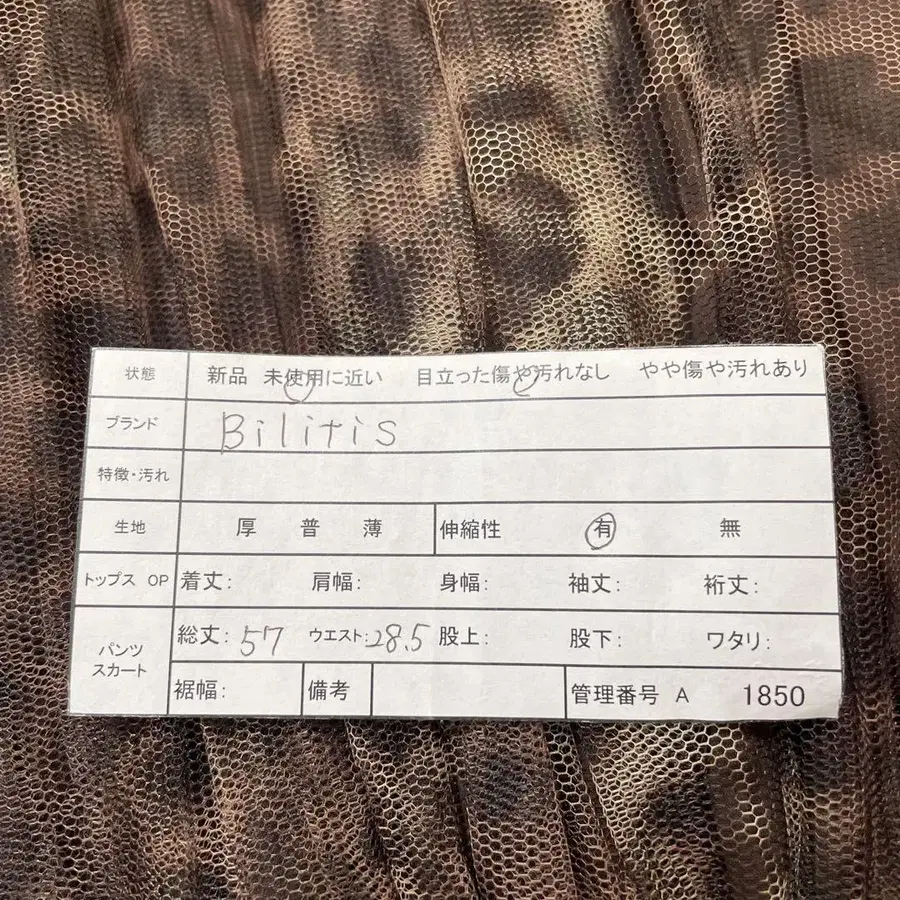 状態 新品 未使用に近い 目立った傷や汚れなし やや傷や汚れあり
ブランド Bilitis
特徴・汚れ
生地 厚 普 薄 伸縮性 有 無
トップス OP 着丈: 肩幅: 身幅: 袖丈: 裄丈:
パンツ スカート 総丈: 57 ウエスト: 28.5 股上: 股下: ワタリ:
裾幅: 備考 管理番号 A 1850